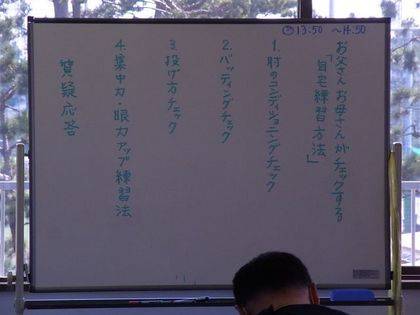 🕐13:50 ～14:50
お父さんお母さんがチェックする
「自宅練習方法」
1. 肘のコンディショニングチェック
2. バッティングチェック
3. 投げ方チェック
4. 集中力・眼力アップ練習法
質疑応答